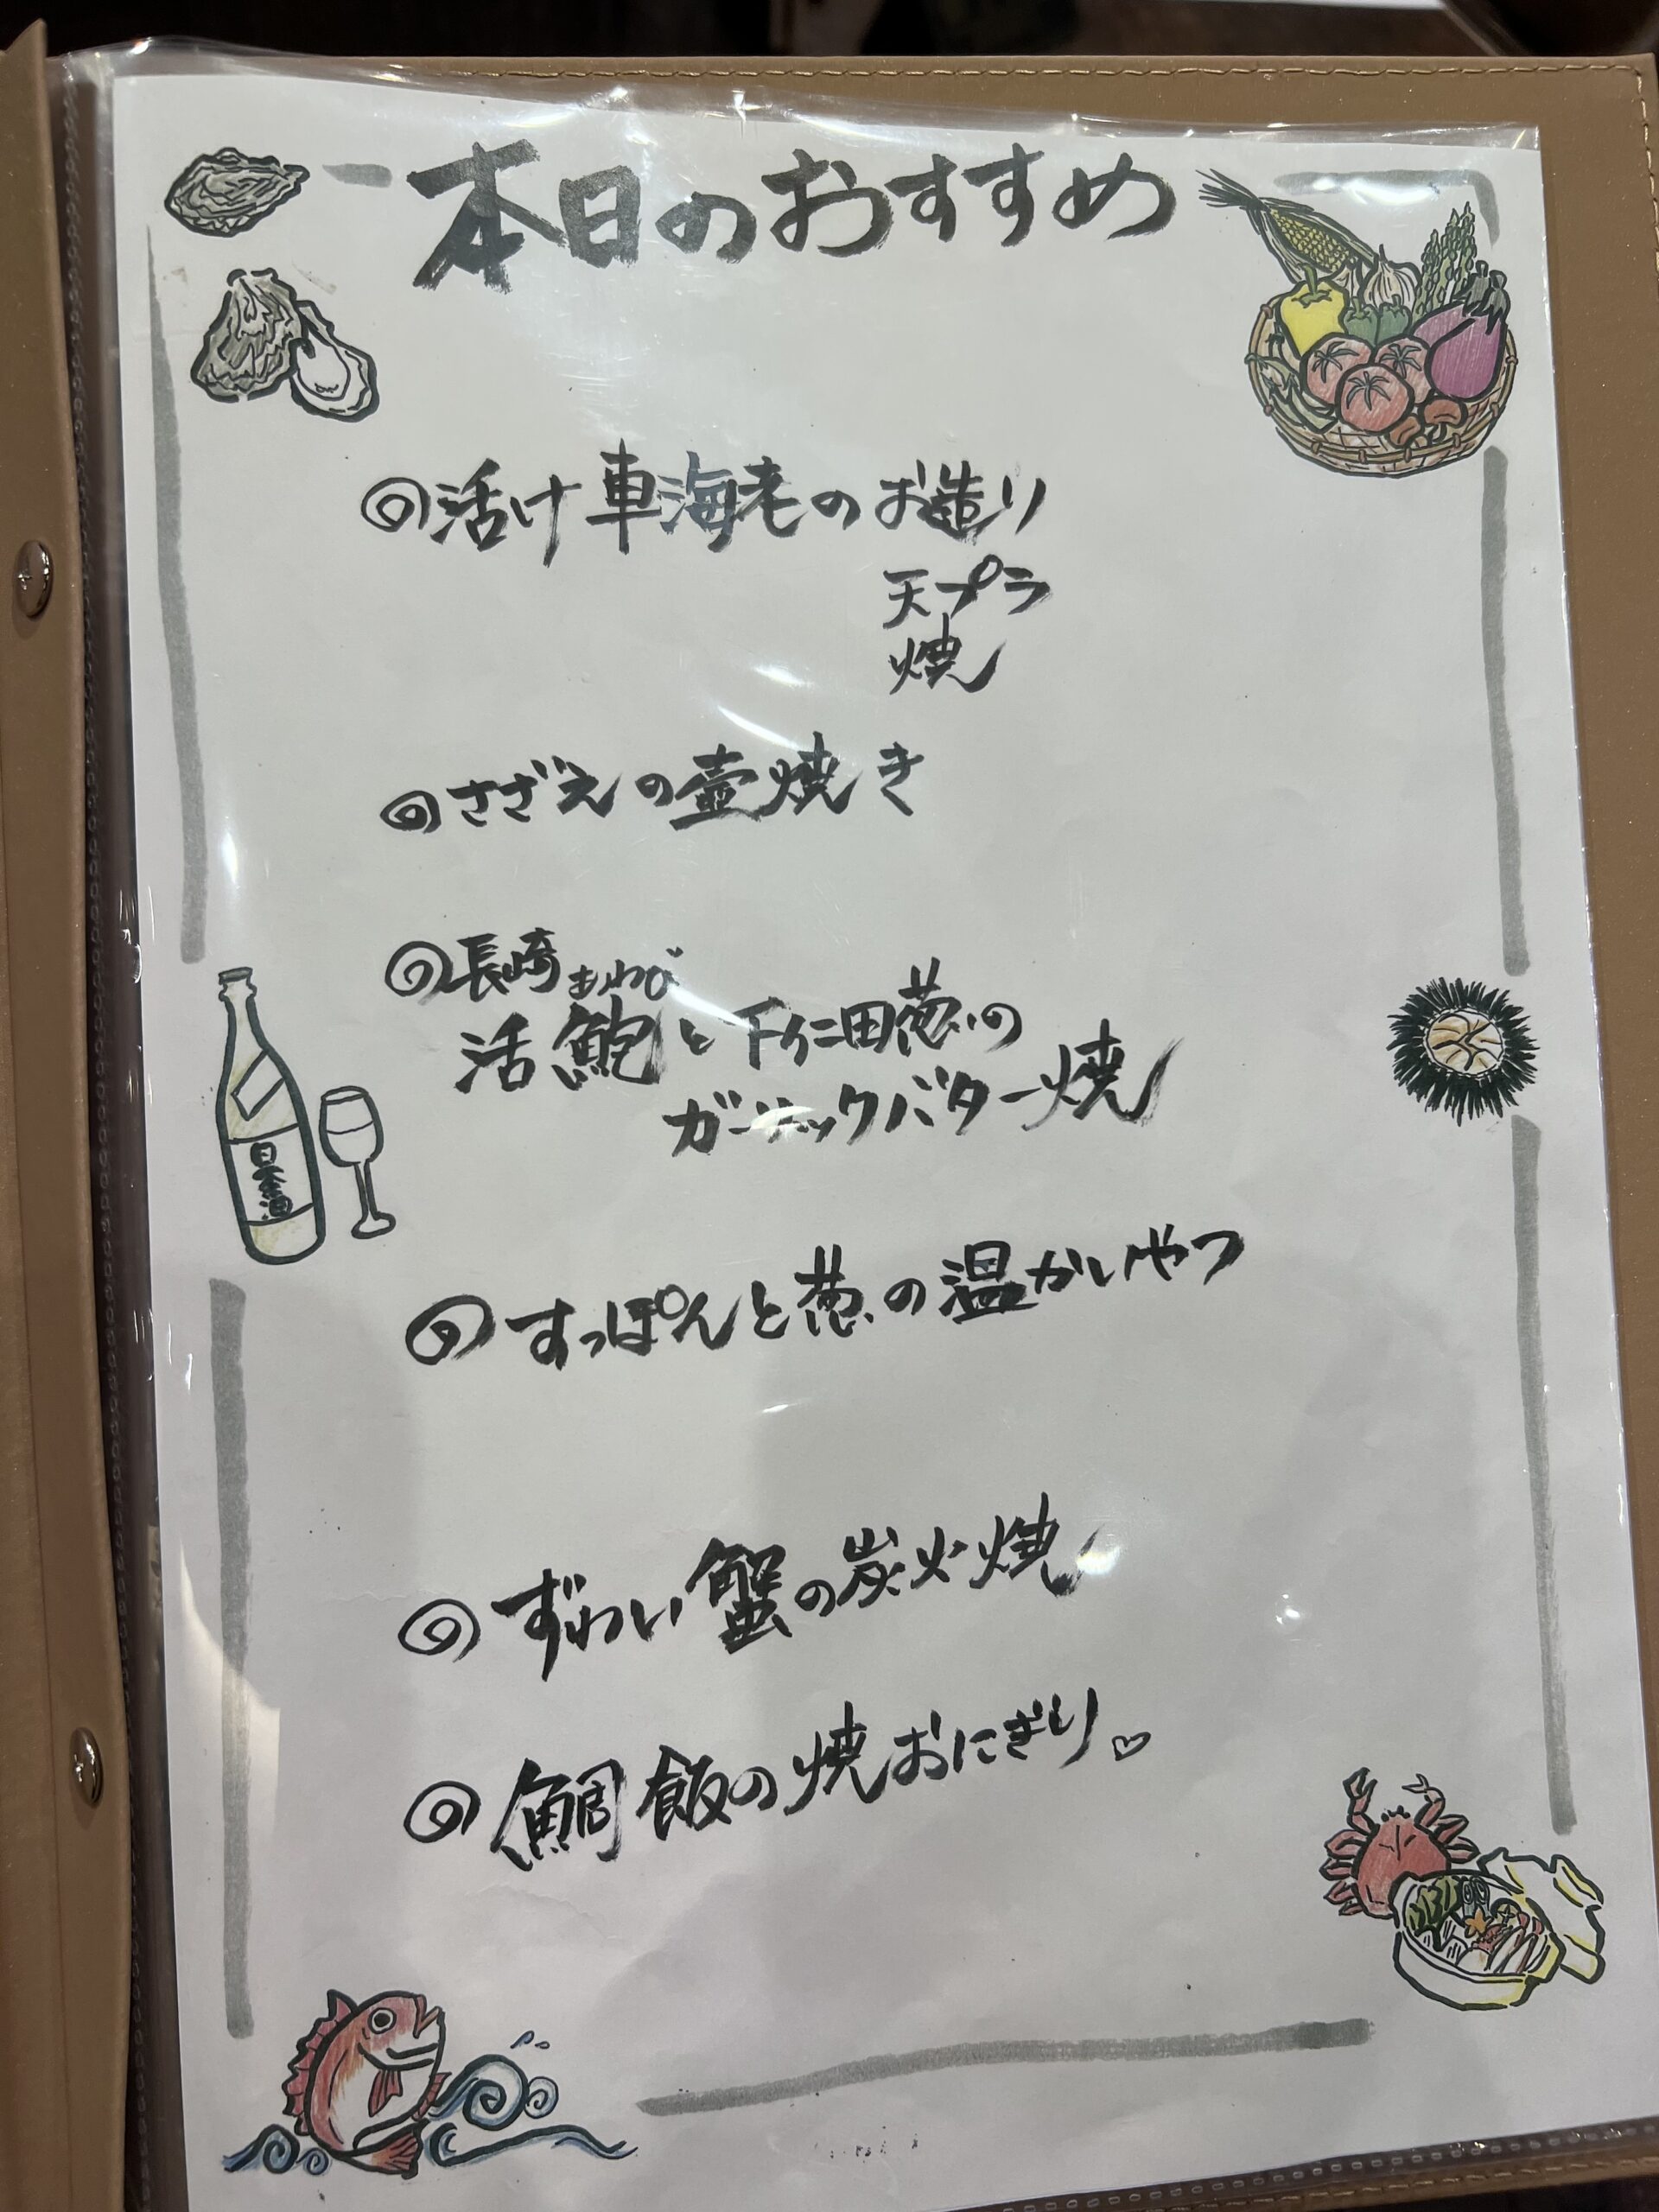 本日のおすすめ
活け車海老のお造り
天プラ
焼
さざえの壷焼き
長崎あわび
活鮑と下仁田葱の
ガーリックバター焼
日本酒
すっぽんと葱の温かいやつ
ずわい蟹の炭火焼
鯛飯の焼おにぎり♡